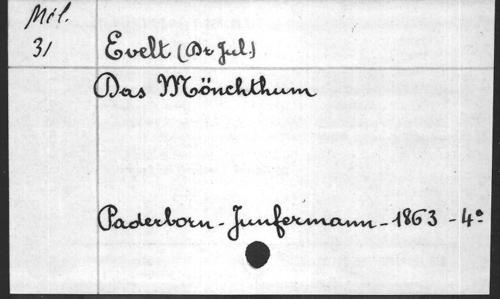 Mél.
31
Evelt (Dr Jul.)
Das Mönchthum
Paderborn - Junfermann - 1863 - 4º